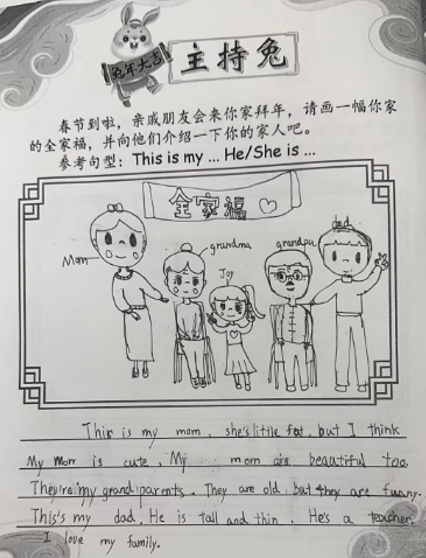 兔年大吉
主持兔
春节到啦，亲戚朋友会来你家拜年，请画一幅你家
的全家福，并向他们介绍一下你的家人吧。
参考句型：This is my ... He/She is ...
全家福
dad
Mom
grandma
grandpa
Joy
This is my mom, she's little fat, but I think
My mom is cute, My mom ais beautiful too.
They're my grandparents. They are old but they are funny.
This's my dad, He is tall and thin. He's a teacher.
I love my family.